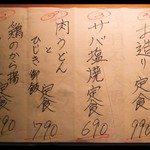 お造り定食
990
サバ塩焼定食
690
肉うどん
と
ひじき御飯
定食
790
鶏のから揚
定食
690